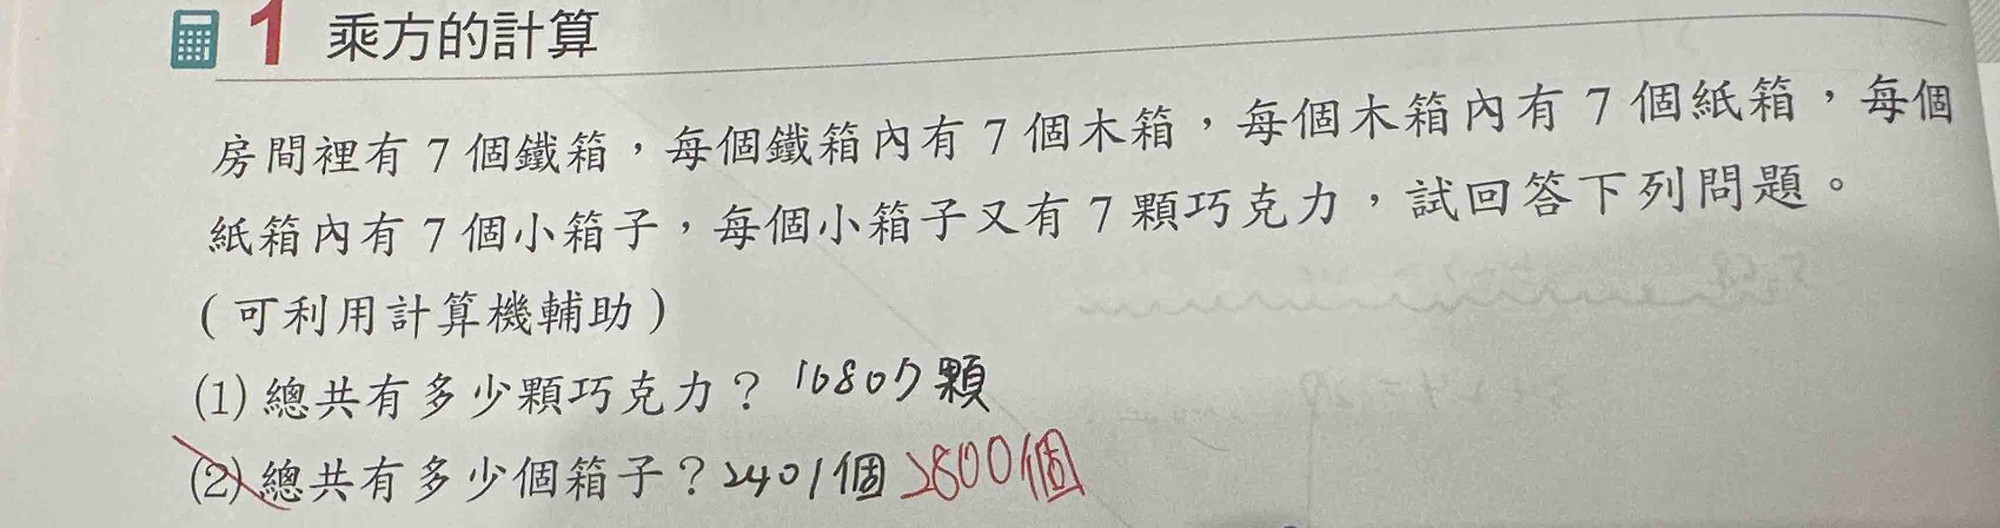 1 乘方的計算
房間裡有 7 個鐵箱，每個鐵箱內有 7 個木箱，每個木箱內有 7 個紙箱，每個
紙箱內有 7 個小箱子，每個小箱子又有 7 顆巧克力，試回答下列問題。
(可利用計算機輔助)
(1) 總共有多少顆巧克力？ 16807 顆
(2) 總共有多少個箱子？ 2401 個 2800 個